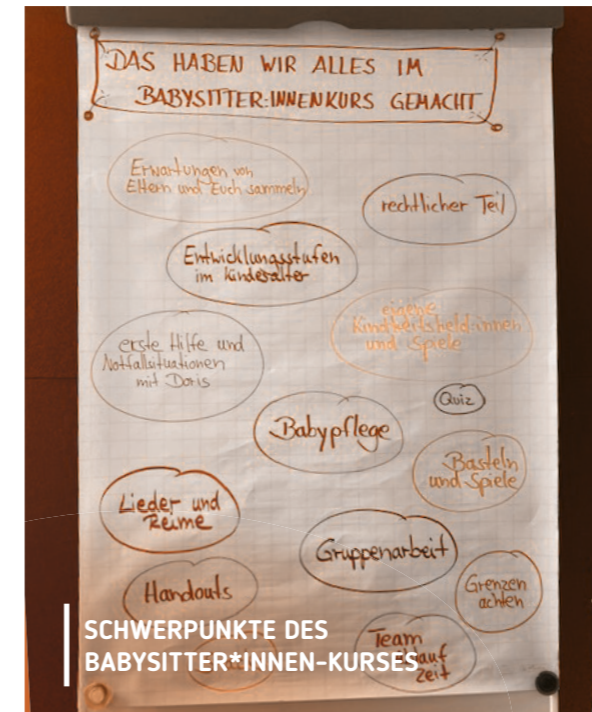 DAS HABEN WIR ALLES IM
BABYSITTER:INNENKURS GEMACHT
Erwartungen von
Eltern und Euch sammeln
rechtlicher Teil
Entwicklungsstufen
im Kindesalter
eigene
Kindheitsheld:innen
und Spiele
erste Hilfe und
Notfallsituationen
mit Doris
Quiz
Babypflege
Basteln
und Spiele
Lieder und
Reime
Gruppenarbeit
Handouts
Grenzen
achten
Team
auf
zeit
SCHWERPUNKTE DES
BABYSITTER*INNEN-KURSES